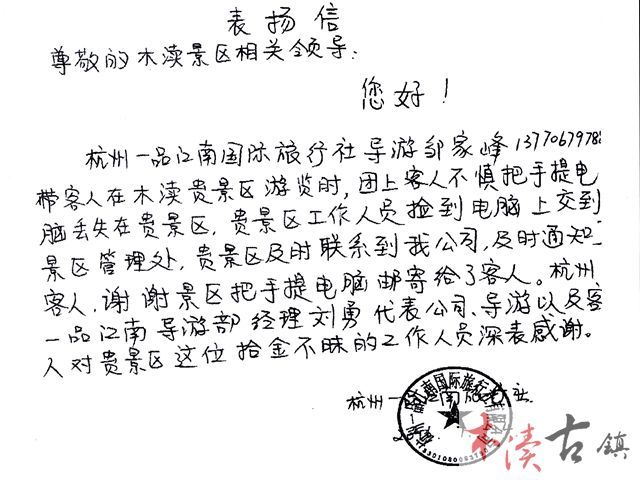 表扬信
尊敬的木渎景区相关领导:
您好!
杭州一品江南国际旅行社导游邹家峰
带客人在木渎贵景区游览时,团上客人不慎把手提电
脑丢失在贵景区,贵景区工作人员捡到电脑上交到
景区管理处,贵景区及时联系到我公司,及时通知
客人,谢谢景区把手提电脑邮寄给了客人。杭州
一品江南导游部经理刘勇代表公司、导游以及客
人对贵景区这位拾金不昧的工作人员深表感谢。
杭州一品江南旅行社
木渎古镇